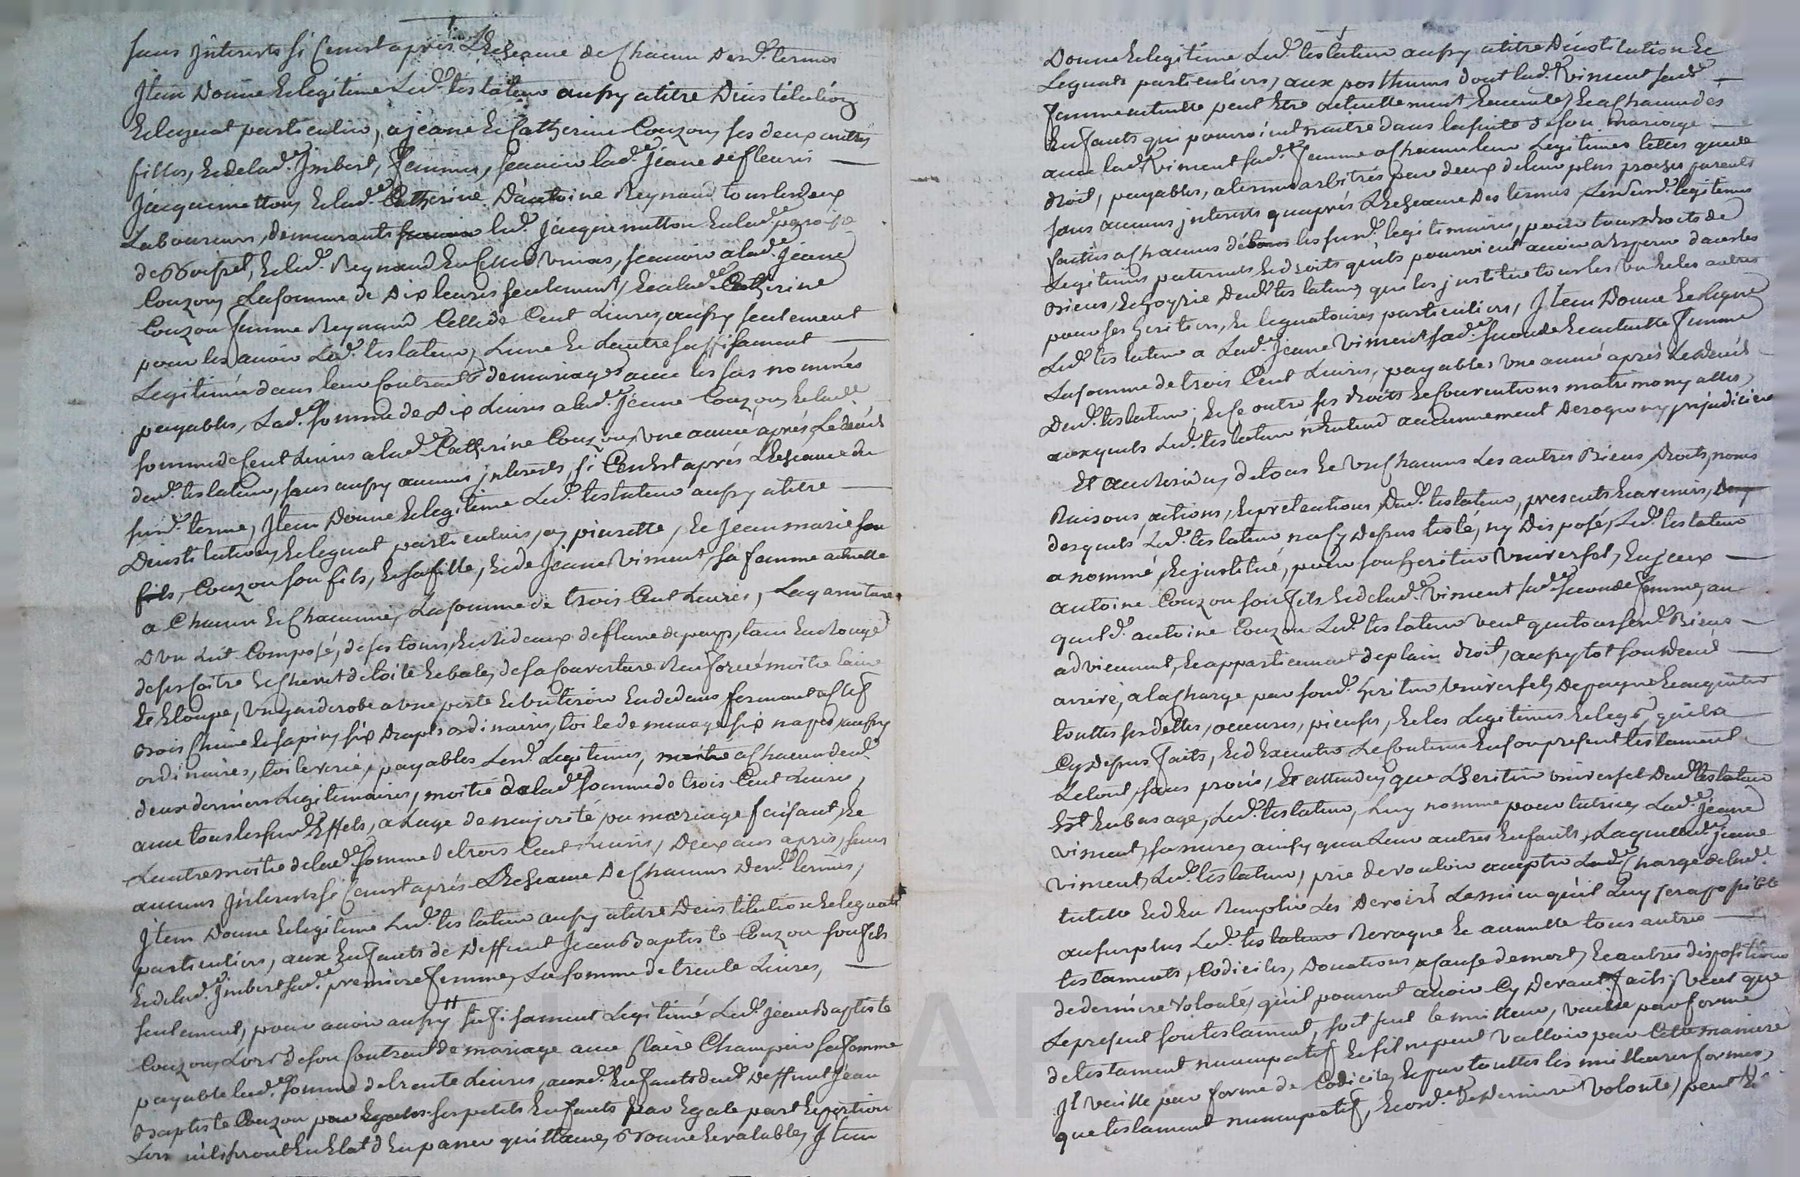 sans jnterests si Cenest après Lécheance de Chacun desd.ts termes
Jtem Donne & legitime Led.t testateur aussy a titre Dinstitution
& legat particulier, a jeane & Catherine Couzon ses deux autres
filles, & de lad.e Jmbert, femmes, scavoir lad.e jeane de fleuris
jacquemetton & lad.e Catherine D'antoine Reynaud tous les deux
Laboureurs, demeurants led.t jacquemetton en lad.e parroisse
de & led.t Reynaud en scavoir a lad.e jeane
Couzon La somme de Dix livres seulement, & a lad.e Catherine
Couzon femme Reynaud Celle de Cent Livres, aussy seulement
pour les avoir Led.t testateur, L'une & L'autre suffisament
Legitimée dans leur Contract de mariage avec les sus nommés
payables, Lad.e somme de Dix Livres a lad.e Jeane Couzon, & lad.e
somme de Cent Livres a lad.e Catherine Couzon, Une année après Le décès
dud.t testateur, sans aussy aucuns jnterests, si Cen'est après L'echeance du
susd.t terme, Jtem Donne & legitime Led.t testateur aussy a titre
Dinstitution, & legat particulier, a pierrette, & Jean marie son
fils, Couzon son fils, & sa fille, & de Jeane Viment, sa femme actuelle
a Chacun & Chacune, La somme de trois Cent Livres, La garniture
D'un Lit Composé, de ses tours, & Rideaux de flene de pays, tain En Rouge
de sa Coitre & Chevet de toile & bale, de sa Couverture Renforcée moitié laine
& Eloupe, Un garderobe a Une porte & butiron En dedans fermant a Clef
Bois Chêne & sapin, six Draps ordinaires, toile de menage, six napes, aussy
ordinaires, toile payables Lesd.ts Legitimes, a Chacun deux
deux derniers Legitimaires, moitié de lad.e somme de trois Cent Livres,
avec tous les susd.ts Effets, a L'age de majorité, ou mariage faisant, &
L'autre moitié de lad.e somme de trois Cent Livres, Deux ans après, sans
aucuns Jnterests si Cenest après Lécheance De Chacun Desd.ts termes,
Jtem Donne & legitime Led.t testateur aussy a titre Dinstitution & legat
particulier, aux Enfants de Deffunt Jean Baptiste Couzon son fils
& de lad.e Jmbert sad.e première femme, La somme de trente Livres,
seulement, pour avoir aussy suffisament Legitimé Led.t jean Baptiste
Couzon, Lors de son Contract de mariage avec Claire Champier sa femme
payable lad.e somme de trente Livres, auxd.ts Enfants dud.t Deffunt Jean
Baptiste Couzon ses petits Enfants par Egale part & portion
Lors En Etat d'En passer quittance, Bonne & valable, Jtem
Donne & legitime Led.t testateur aussy a titre Dinstitution &
Legats particuliers, aux posthumes dont lad.e Viment sad.e
femme actuelle peut être actuellement Enceinte, & a Chacun des
Enfants qui pourroient naître dans la suite de son mariage
avec lad.e Viment sad.e femme a Chacun leur Legitime telles que de
droit, payables, a termes arbitrés par deux de leur plus proches parents
sans aucuns jnterests qu'après Lécheance Des termes, Lesd.ts legitimes
faites a Chacuns de les susd.ts legitimaires, pour tous droits de
Legitimes paternels & droits qu'ils pourroient avoir a Esperer dans les
Biens, & hoyrie Dud.t testateur, qui les jnstitue tous les Uns & les autres
pour ses heritiers, & legataires particuliers, Jtem Donne & legue
Led.t testateur a Lad.e Jeane Viment sad.e seconde & actuelle femme
La somme de trois Cent Livres, payables Une année après Le decès
Dud.t testateur, & ce outre ses droits & Conventions matrimonyalles,
auxquels Led.t testateur n'Entend aucunnement Deroger ny préjudicier
Et au Residu, de tous & Un Chacuns Les autres Biens, Droits, noms
Raisons, actions, & prétentions, Dud.t testateur, presents & avenirs,
desquels Led.t testateur n'a cy Dessus testé, ny Disposé, Led.t testateur
a nommé, & jnstitué, pour son heritier Universel, En jceux
antoine Couzon son fils & de lad.e Viment sad.e seconde femme, au
quel d.t antoine Couzon Led.t testateur veut que tous sesd.ts Biens
adviennent, & appartiennent de plain droit, aussytot son décès
arrivé, a la Charge par sond.t heritier Universel, De payer & acquitter
toutes ses dettes, œuvres, pieuses, & les Legitimes & legs, qu'il a
Cy dessus faits, & d'Executer Le Contenu En son present testament
Le tout, sans procès, Et attendu, que L'heritier Universel Dud.t testateur
Est En bas age, Led.t testateur, Luy nomme pour tutrice, Lad.e Jeane
Viment, sa mere, ainsy qu'a Leur autres Enfants, Laquelle d.e Jeane
Viment, Led.t testateur, prie de vouloir accepter Lad.e Charge de lad.e
tutelle & d'En Remplir Les Devoirs Le mieux qu'il Luy sera possible
au surplus Led.t testateur Revoque & annulle tous autres
testaments, Codiciles, Donations a Cause de mort, & autres dispositions
de dernière Volonté, qu'il pourroit avoir Cy Devant faits, Veut que
Le present son testament, soit seul & meilleur, vaille par forme
de testament nuncupatif & s'il ne peut Valloir par Cette maniere
Jl vaille par forme de Codicile, & par touttes les meilleures formes,
que testament nuncupatif, & ord.e de derniere Volonté, peut &